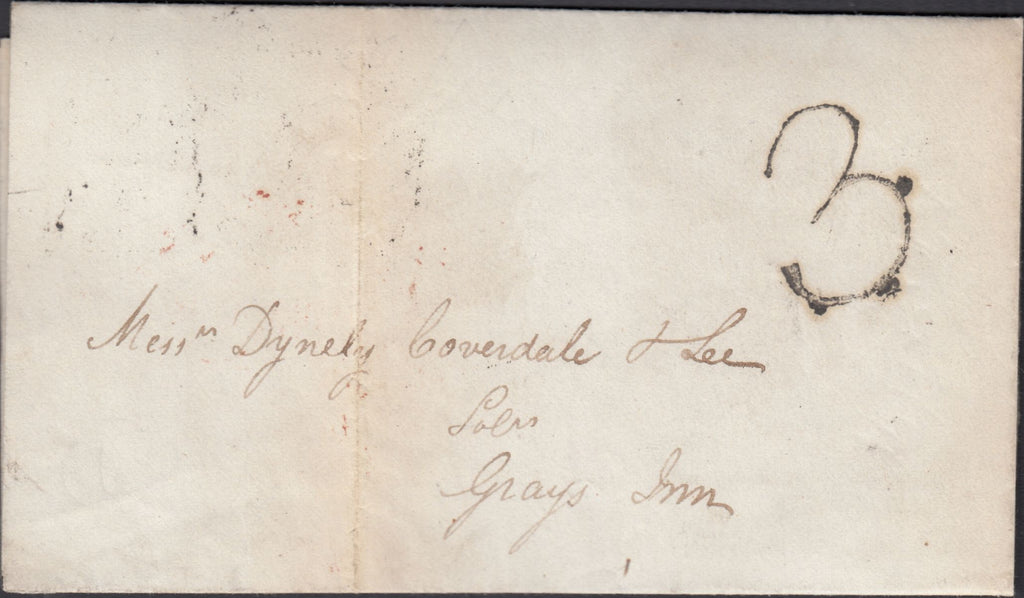 3
Messrs Dynely Coverdale & Lee
Solrs
Grays Inn